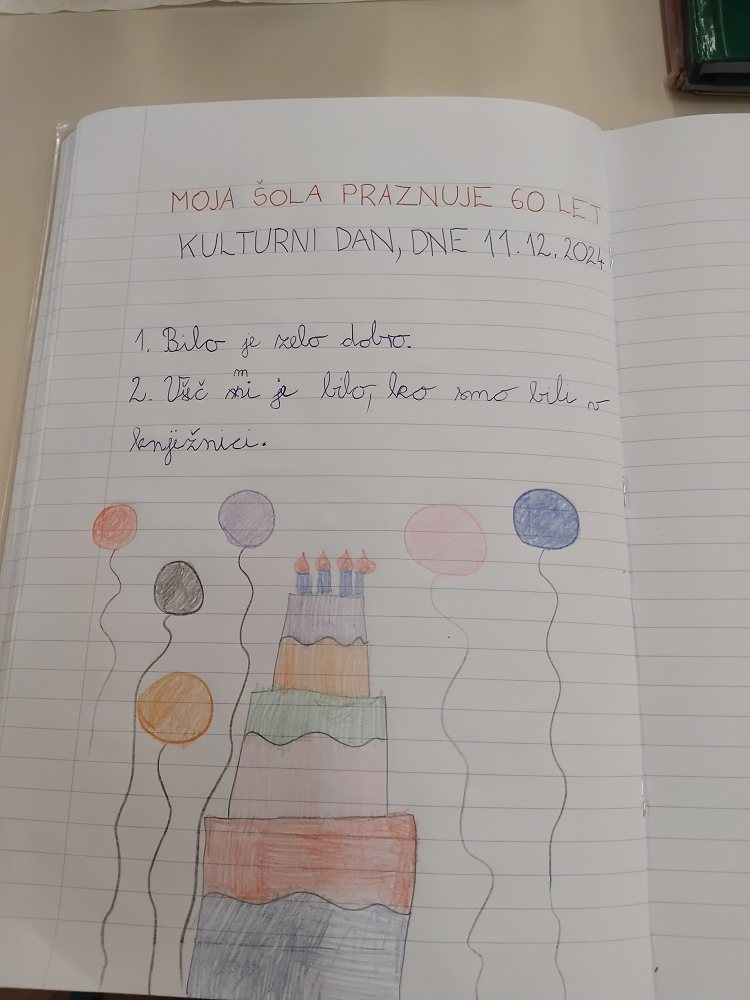 MOJA ŠOLA PRAZNUJE 60 LET
KULTURNI DAN, DNE 11.12.2024
1. Bilo je zelo dobro.
2. Všč mi je bilo, ko smo bili v
knjižnici.